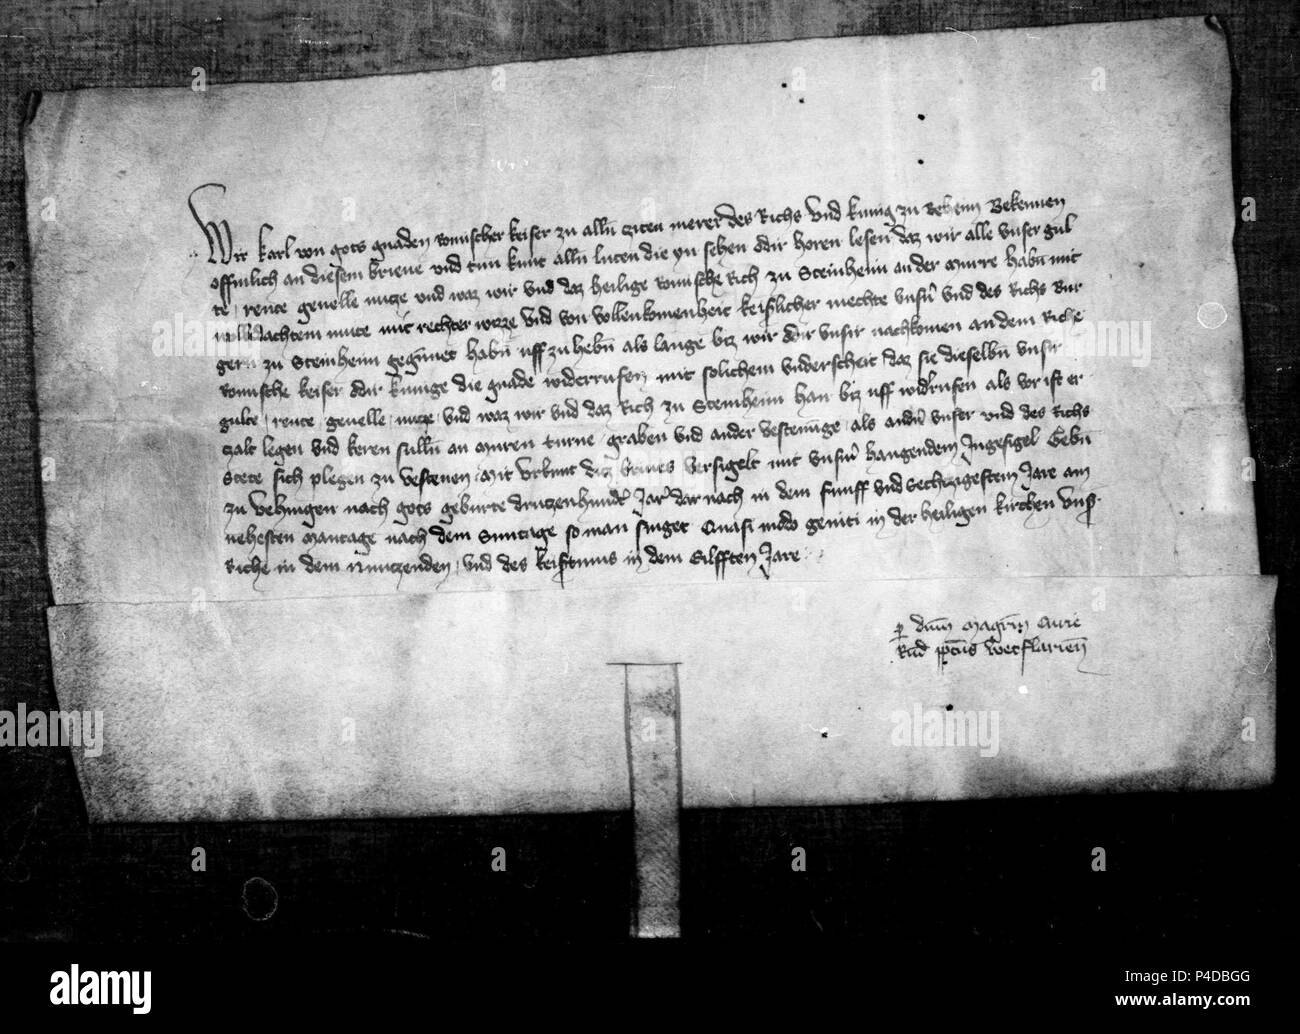 Wir Karl von gots gnaden Romischer keiser zu alln cziten merer des Richs und kunig zu Behem Bekennen
offinlich an diesem brieue und tun kunt alln luten die yn sehen odir horen lesen daz wir alle unser gul
te, rente geuelle nucze und waz wir und daz heilige Romische Rich zu Steinheim an der Murre habn mit
wolbedachtem mute mit rechter wizze und von vollenkomenheit keiserlicher mechte unsn und des Richs Bur
gern zu Steinheim gegunnet habn uff zu hebn als lange biz wir odir unsir nachkomen an dem Riche
Romische keiser odir kunige die gnade widerrufen mit solichem underscheit daz sie dieselbn unsir
gulte, rente, geuelle, nucze, und waz wir und daz Rich zu Steinheim han biz uff widrrufen als vor ist er
czalt legen und keren sulln an muren turne, graben und ander vestenunge, als andn unser und des Richs
Stete sich plegen zu vestenen, Mit urkunt dicz brieues versigelt mit unsm hangendem Ingesigel Gebn
zu Vehingen nach gots geburte druczenhundt Jar dar nach in dem funff und Sechczigestem Jare am
nehesten Mantage nach dem Suntage so man singet Quasi modo geniti in der heiligen kirchen unsr
Riche in dem Nunczenden, und des keisertums in dem Eilfften Jare
p dnm Magrm Curie
Rud ppitus Wetflarien
alamy
Image ID: P4DBGG
www.alamy.com